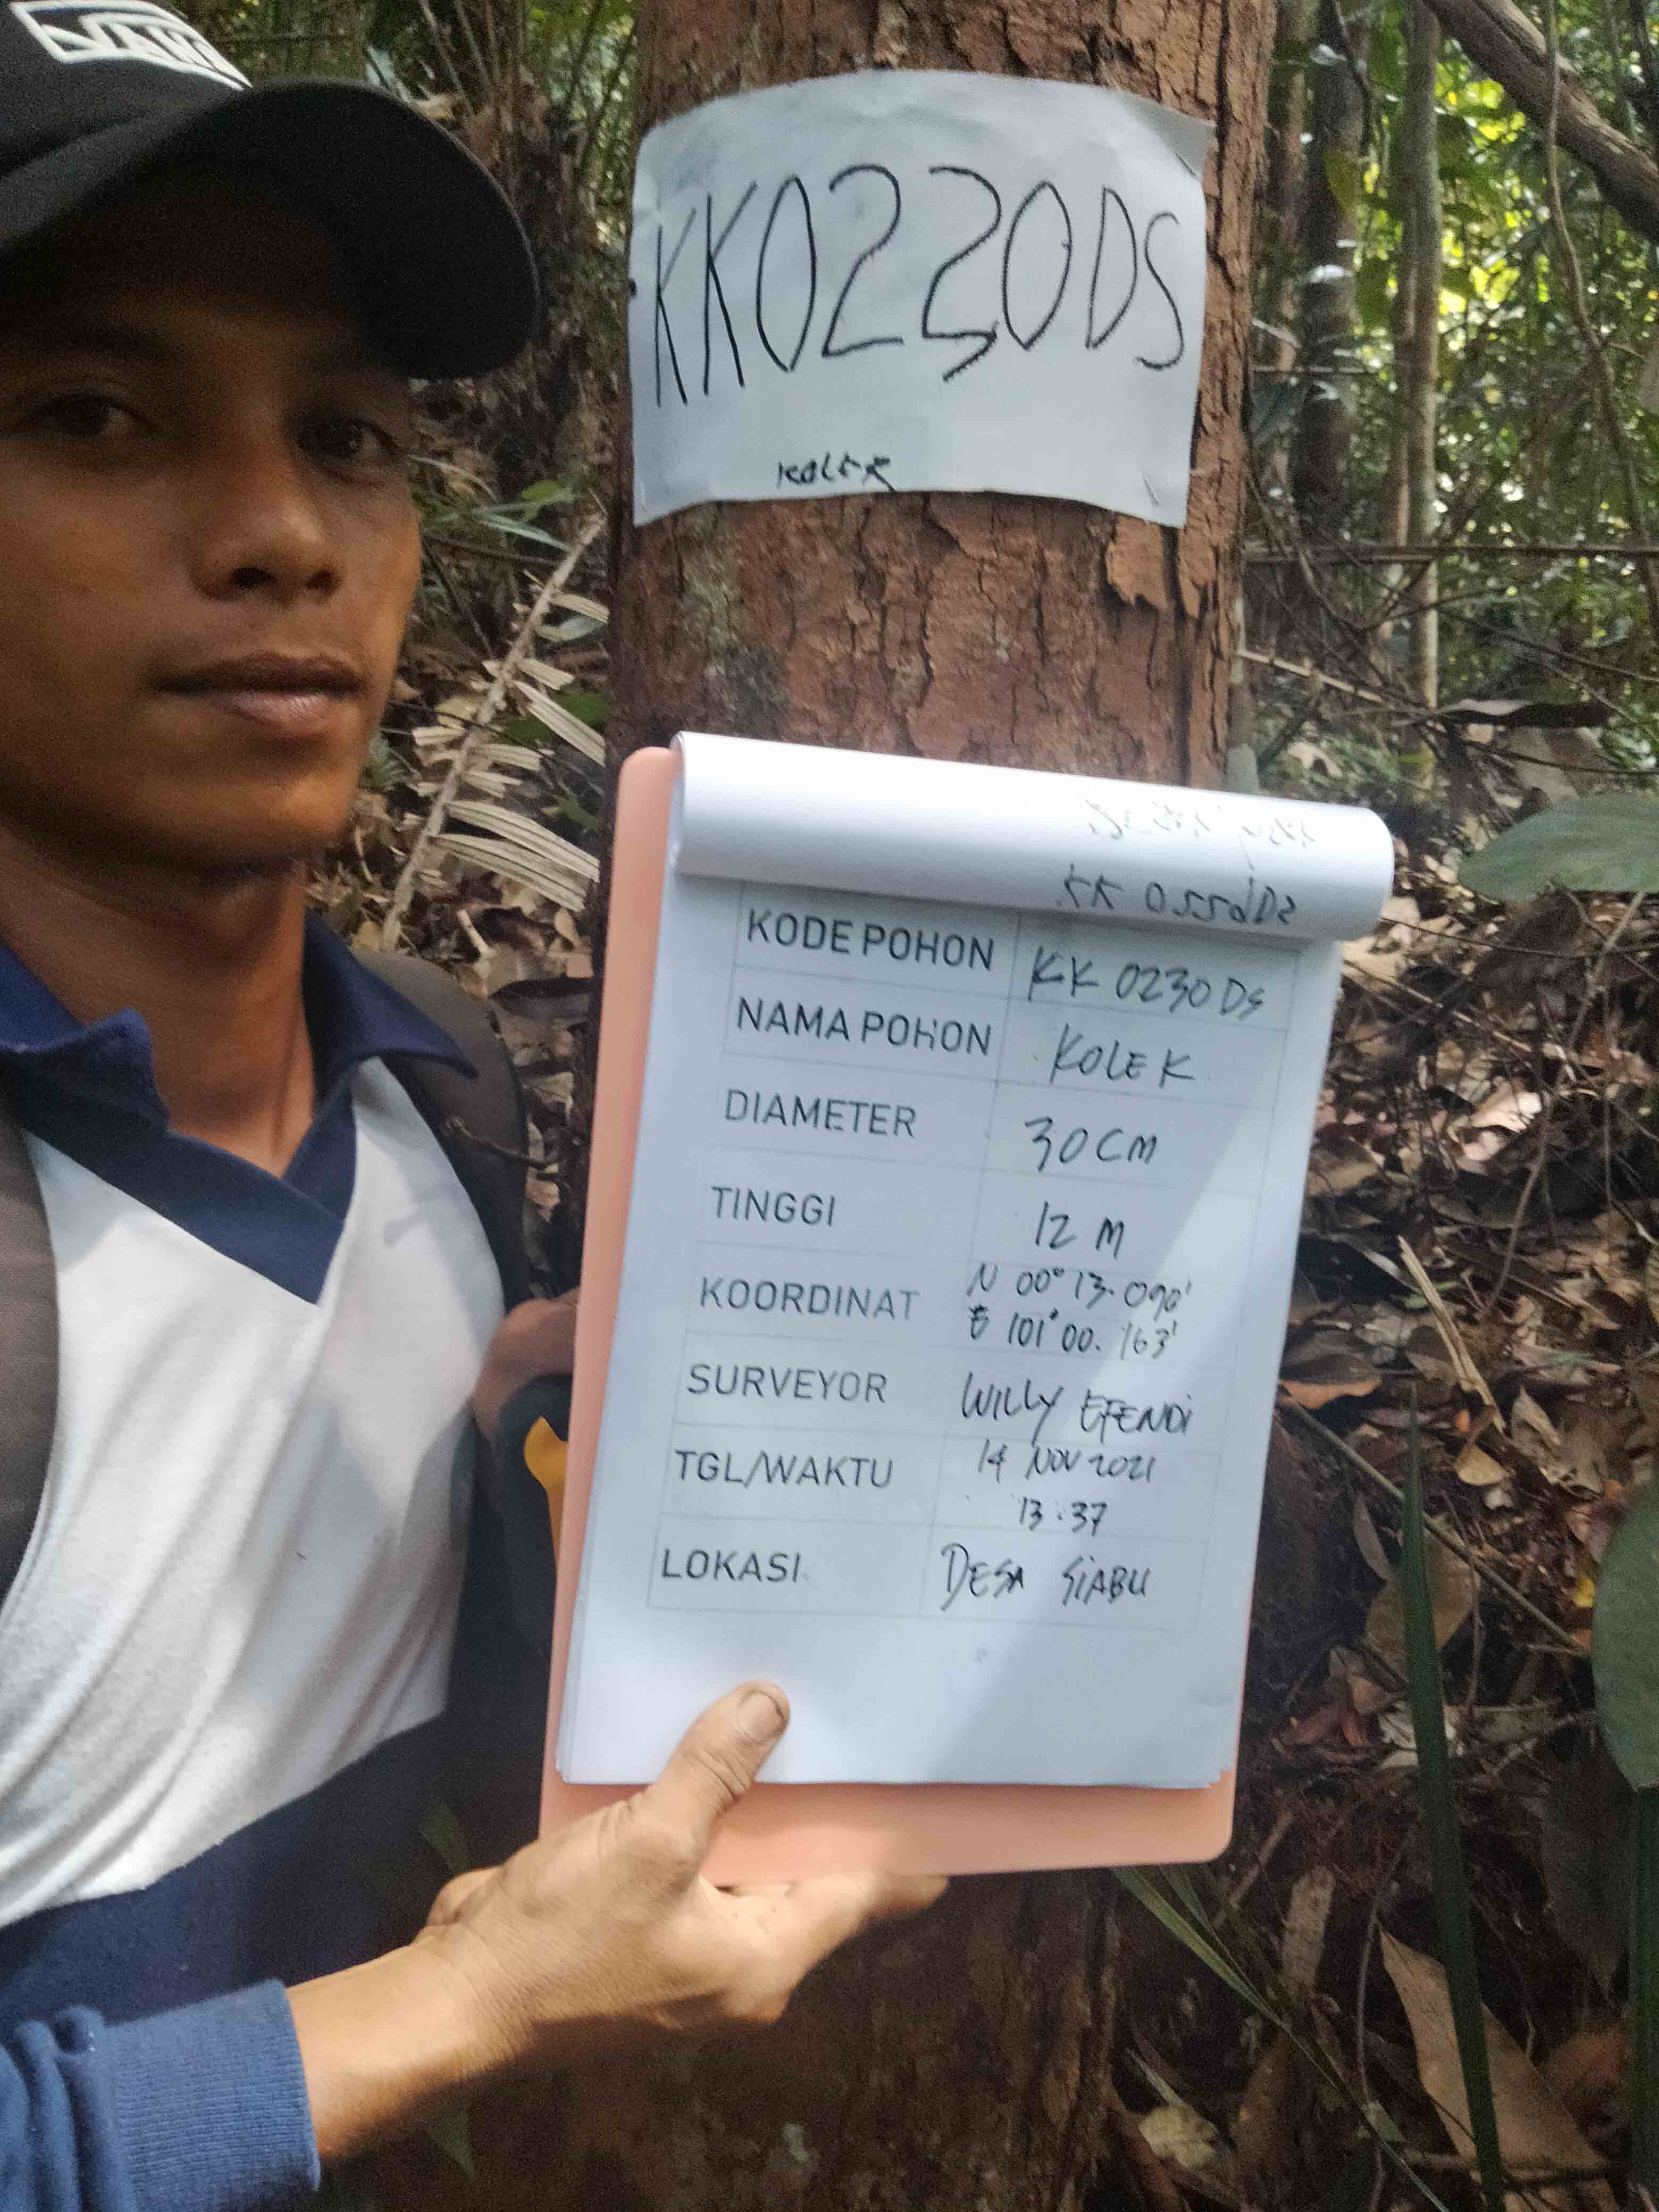 KK0230DS
KOLEK
KODE POHON KK 0230 DS
NAMA POHON KOLEK
DIAMETER 30 CM
TINGGI 12 M
KOORDINAT N 00° 13.090'
E 101° 00. 163'
SURVEYOR WILLY EFENDI
TGL/WAKTU 14 NOV 2021
13:37
LOKASI DESA SIABU